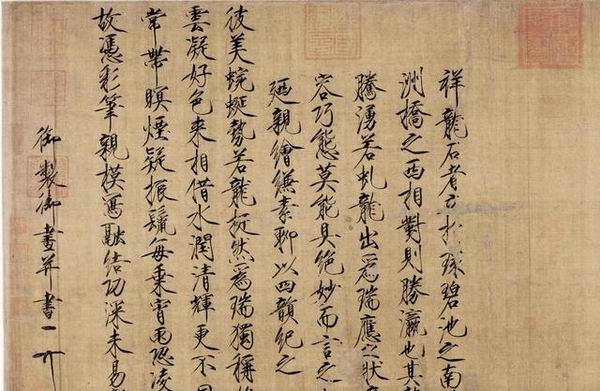 祥龍石者立於環碧池之南
洲橋之西相對則勝瀛也其
騰湧若虬龍出為瑞應之狀
容巧態莫能具絕妙而言之
廼親繪縑素聊以四韻紀之
彼美蜿蜒勢若龍挺然為瑞獨稱
雲凝好色來相借水潤清輝更不
常帶暝煙疑振鬣每乘宵雨恐凌
故憑彩筆親模寫融結功深未易
御製御畫并書